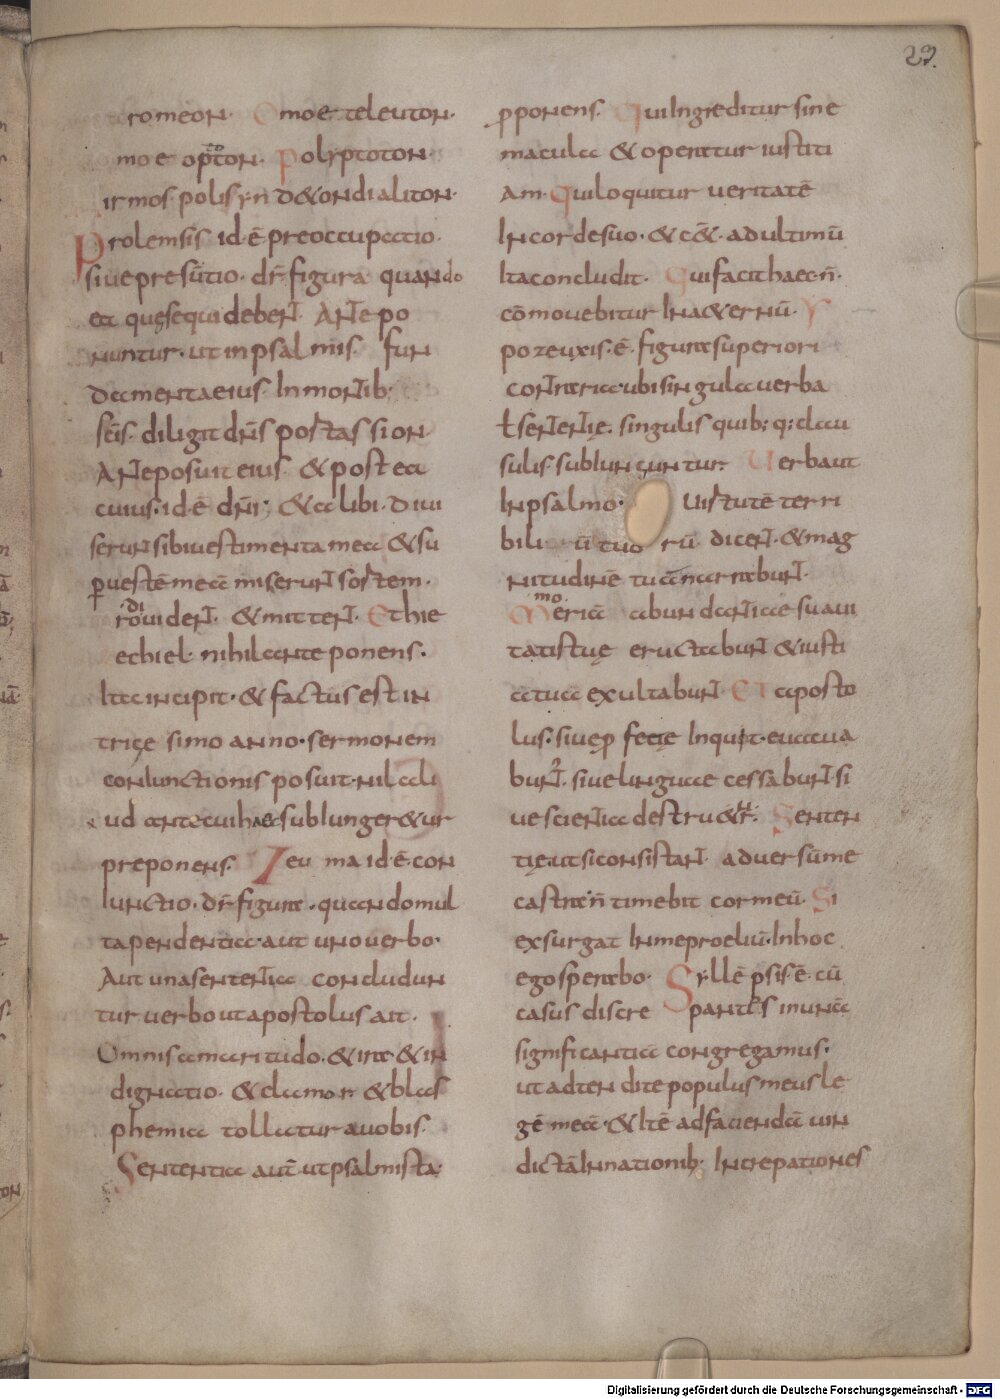 23.
romeon. Omoeteleuton.
moeoptoton. Polyptoton.
irmos. polisyn d&ondialiton.
Prolemsis id.ē preoccupatio.
sive presūtio. dr̄. figura quando
ea quęsequi debent. Antepo
nuntur. ut in psalmis. fun
damenta eius. In montib;
scīs. diligit dn̄s portas sion.
Anteposuit eius. & postea
cuius. id.ē dn̄i; & alibi. Divi
serunt sibi vestimenta mea & su
per vestē meā miserunt sortem.
Pro dividerent. & mitterent. Ethie
zechiel. nihil ante ponens.
Ita incipit. & factus est in
tricęsimo anno. sermonem
coniunctionis posuit. nil ali
ud ante cui haec subiunger&ur
preponens. Zeuma id.ē con
iunctio. dr̄. figura. quando mul
ta pendentia. aut uno verbo.
Aut una sententia concludun
tur verbo ut apostolus ait.
Omnis amaritudo. & ira & in
dignatio. & clamor & blas
phemia tollatur a vobis.
Sententia aut̄ ut psalmista.
pponens. Qui Ingreditur sine
macula & operatur iustiti
am. Qui loquitur veritatē
In corde suo. & c&̄. ad ultimū
Ita concludit. Qui facit haec. n̄.
cōmovebitur In aeternū. Y
pozeuxis. ē. figura superiori
contraria. ubi singula verba
ł sententię. singulis quib; q; clau
sulis. subiunguntur. Verba ut
In psalmo. Virtutē terri
biliū tuorū dicent. & mag
nitudinē tuā narrabunt.
Memoriā abundantiae suavi
tatis tuę eructabunt & iusti
tia tua exultabunt. ET aposto
lus. sive pfetię Inquit. evacua
bunt. sive linguae cessabunt. si
ve scientia destru&ur. Senten
tię. ut si consistant adversū me
castra. n̄ timebit cor meū. Si
exsurgat In me proeliū. In hoc
ego sperabo. Syllēpsis. ē. cū
casus discrepantes in unā
significantiā congregamus.
ut adtendite populus meus le
gē meā. & Itē ad faciendā vin
dictā In nationib; Increpationes
Digitalisierung gefördert durch die Deutsche Forschungsgemeinschaft - DFG